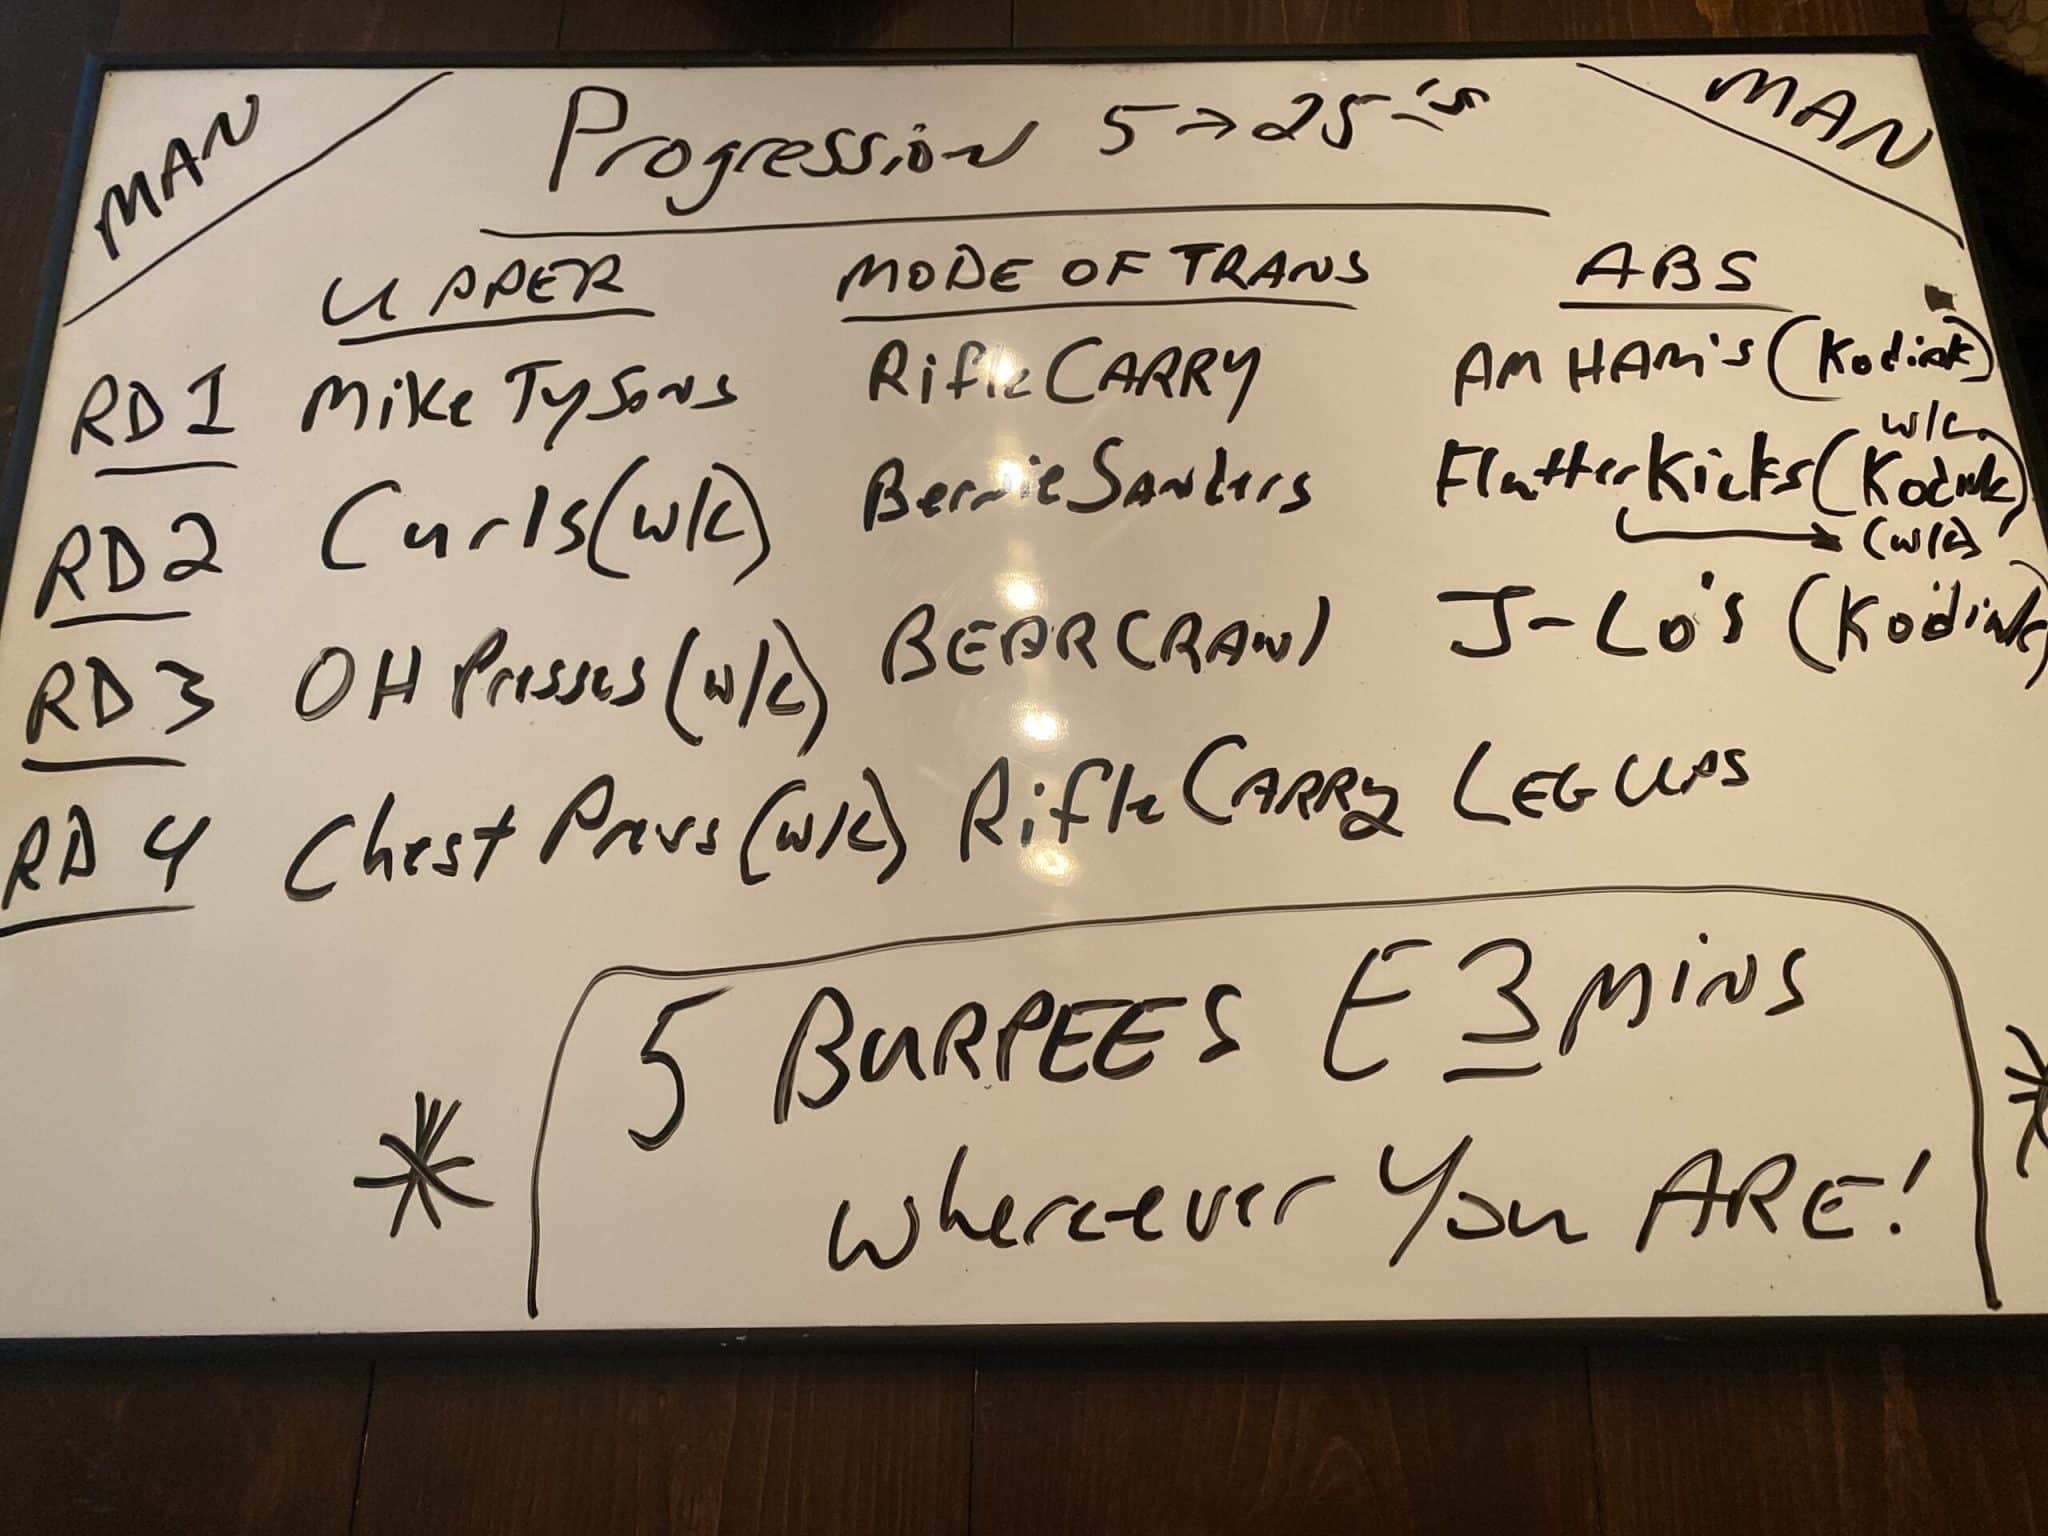 MAN
Progression 5→25-'s
MAN
UPPER MODE OF TRANS ABS
RD 1 Mike Tysons Rifle CARRY AM HAM's (Kodiak)
w/c
RD 2 Curls (w/c) Bernie Sanders Flutter Kicks (Kodiak)
(w/c)
RD 3 OH Presses (w/c) BEAR CRAWl J-Lo's (Kodiak)
RD 4 Chest Press (w/c) Rifle CARRY LEG UPS
* 5 BURPEES E 3 MiNS *
wherever You ARE!